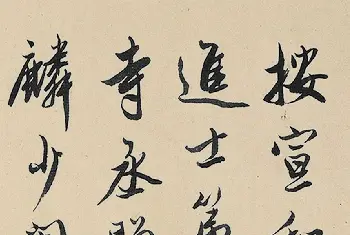 按宣和
進士第
寺丞
麟少